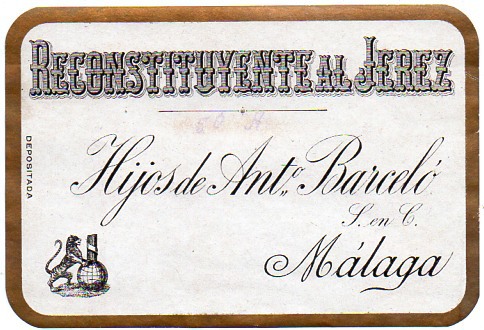 RECONSTITUYENTE AL JEREZ
50 A
Hijos de Ant.º Barceló
S. en C.
Málaga
DEPOSITADA